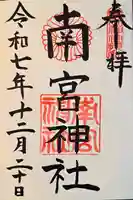 奉拝
南宮神社
令和七年十二月二十日